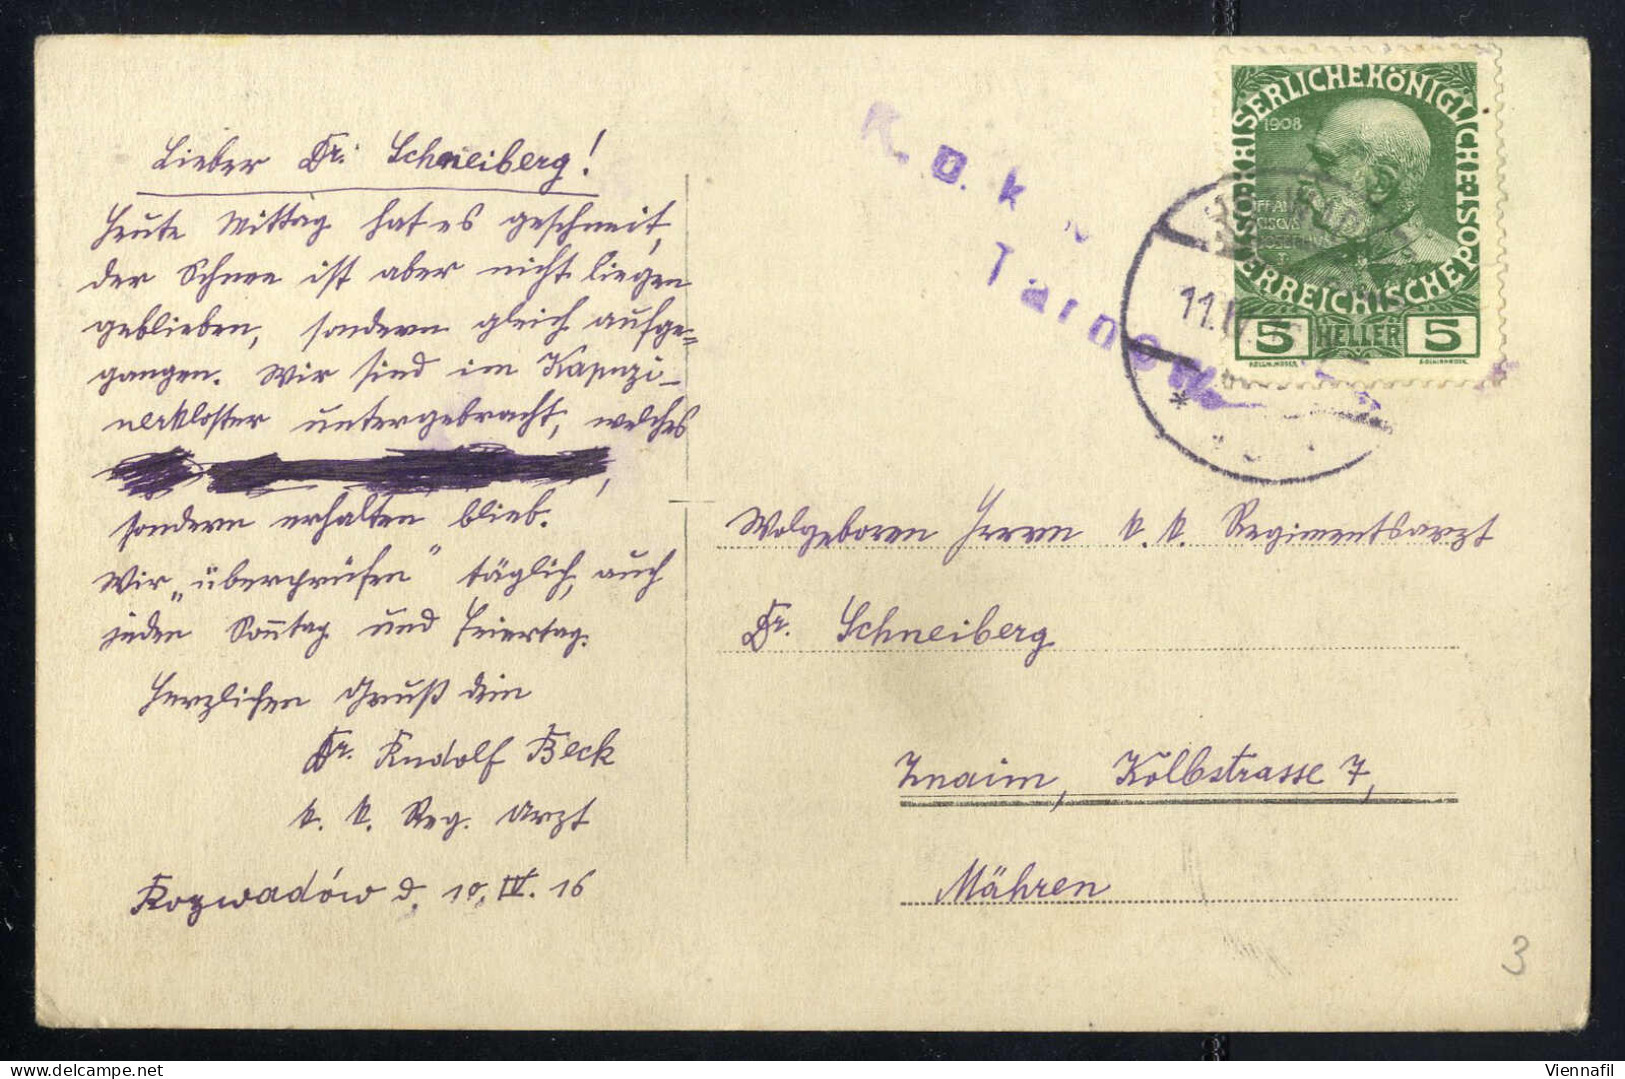 Lieber Dr. Schneiberg!
Heute Mittag hat es geschneit,
der Schnee ist aber nicht liegen
geblieben, sondern gleich aufge=
gangen. Wir sind im Kapuzi-
nerkloster untergebracht, welches
sondern erhalten blieb.
Wir „überprüfen" täglich, auch
jeden Sonntag und Feiertag.
Herzlichen Gruß dein
Dr. Rudolf Beck
k. k. Reg. Arzt
Rozwadów d. 10. IV. 16
KAISERLICHE KÖNIGLICHE ÖSTERREICHISCHE POST
1908
5 HELLER 5
11.IV
Tarnow
Wolgeboren Herrn k. k. Regimentsarzt
Dr. Schneiberg
Znaim, Kölbstrasse 7,
Mähren
3
delcampe.net
Viennafil